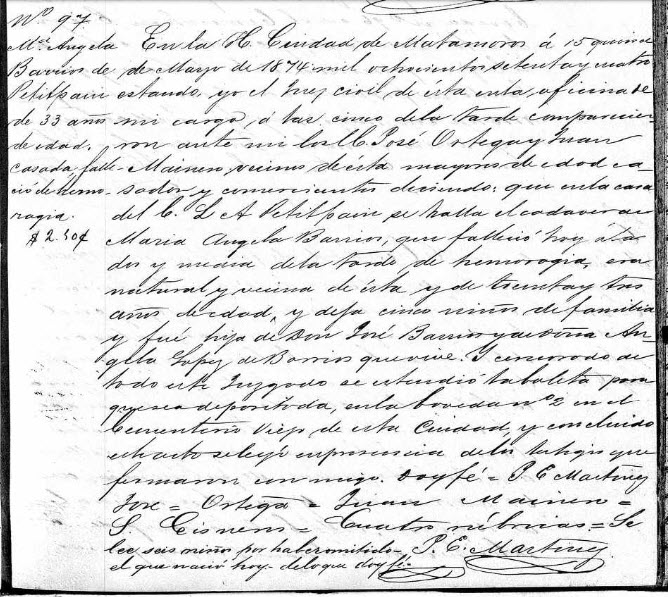 Nº 97
Mª Angela
Barrios de
Petitpain
de 33 años
de edad.
casada, falle-
ció de hemo-
ragia.
$ 2.50¢
En la H. Ciudad de Matamoros á 15 quince
de Mayo de 1874 mil ochocientos setenta y cuatro
estando yo el Juez civil de esta en la oficina de
mi cargo, á las cinco de la tarde comparecie-
ron ante mi los C.C. José Ortega y Juan
Mainero vecinos de ésta mayores de edad ca-
sados, y comerciantes deciendo: que en la casa
del C. L A Petitpain se halla el cadaver de
Maria Angela Barrios, que falleció hoy a las
dos y media de la tarde de hemoragia, era
natural y vecina de ésta y de treinta y tres
años de edad, y deja cinco niños de familia
y fué hija de Don José Barrios y de Doña An-
gela Lopez de Barrios que vive. Y cerciorado de
todo este Juzgado se estendió la boleta para
que sea depositada, en la boveda nº 2 en el
Cementerio Viejo de esta Ciudad, y concluido
el acto se leyó en presencia de los testigos que
firmaron con migo. Doy fé = P. E Martinez
José = Ortega = Juan Mainero =
S. Cisneros = Cuatro rúbricas = Se
lee seis niños por haber omitido
el que nació hoy de lo que doy fé.
P. E. Martinez